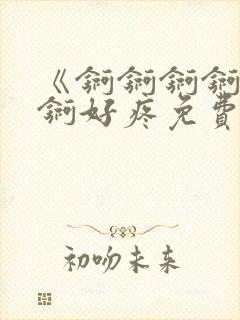 《锕锕锕锕
锕好疼免費
初吻未来